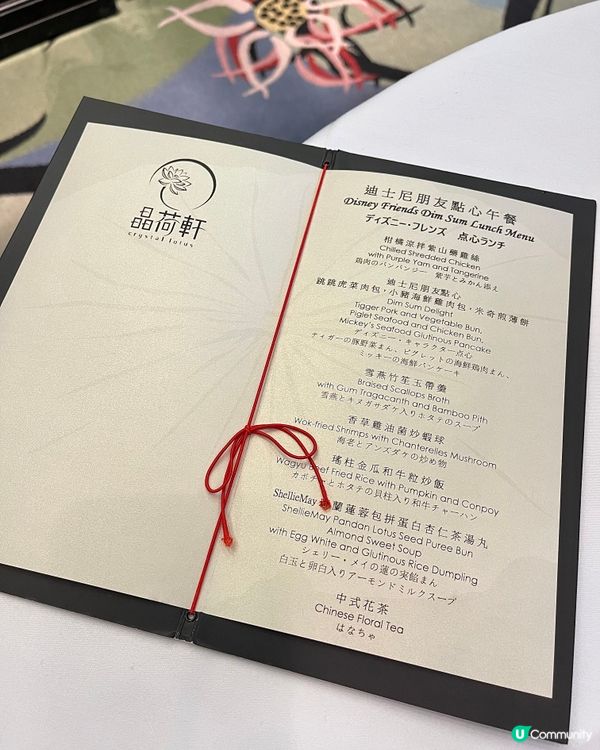 晶荷軒
crystal lotus
迪士尼朋友點心午餐
Disney Friends Dim Sum Lunch Menu
ディズニー・フレンズ 点心ランチ
柑橘涼拌紫山藥雞絲
Chilled Shredded Chicken
with Purple Yam and Tangerine
鶏肉のバンバンジー 紫芋とみかん添え
迪士尼朋友點心
跳跳虎菜肉包·小豬海鮮雞肉包·米奇煎薄餅
Dim Sum Delight
Tigger Pork and Vegetable Bun,
Piglet Seafood and Chicken Bun,
Mickey's Seafood Glutinous Pancake
ディズニー・キャラクター点心
ティガーの豚野菜まん、ピグレットの海鮮鶏肉まん、
ミッキーの海鮮パンケーキ
雪燕竹笙玉帶羹
Braised Scallops Broth
with Gum Tragacanth and Bamboo Pith
雪燕とキヌガサダケ入りホタテのスープ
香草雞油菌炒蝦球
Wok-fried Shrimps with Chanterelles Mushroom
海老とアンズダケの炒め物
瑤柱金瓜和牛粒炒飯
Wagyu Beef Fried Rice with Pumpkin and Conpoy
カボチャとホタテの貝柱入り和牛チャーハン
ShellieMay 蘭蓮蓉包拼蛋白杏仁茶湯丸
ShellieMay Pandan Lotus Seed Puree Bun
Almond Sweet Soup
with Egg White and Glutinous Rice Dumpling
シェリー・メイの蓮の実餡まん
白玉と卵白入りアーモンドミルクスープ
中式花茶
Chinese Floral Tea
はなちゃ
U Community